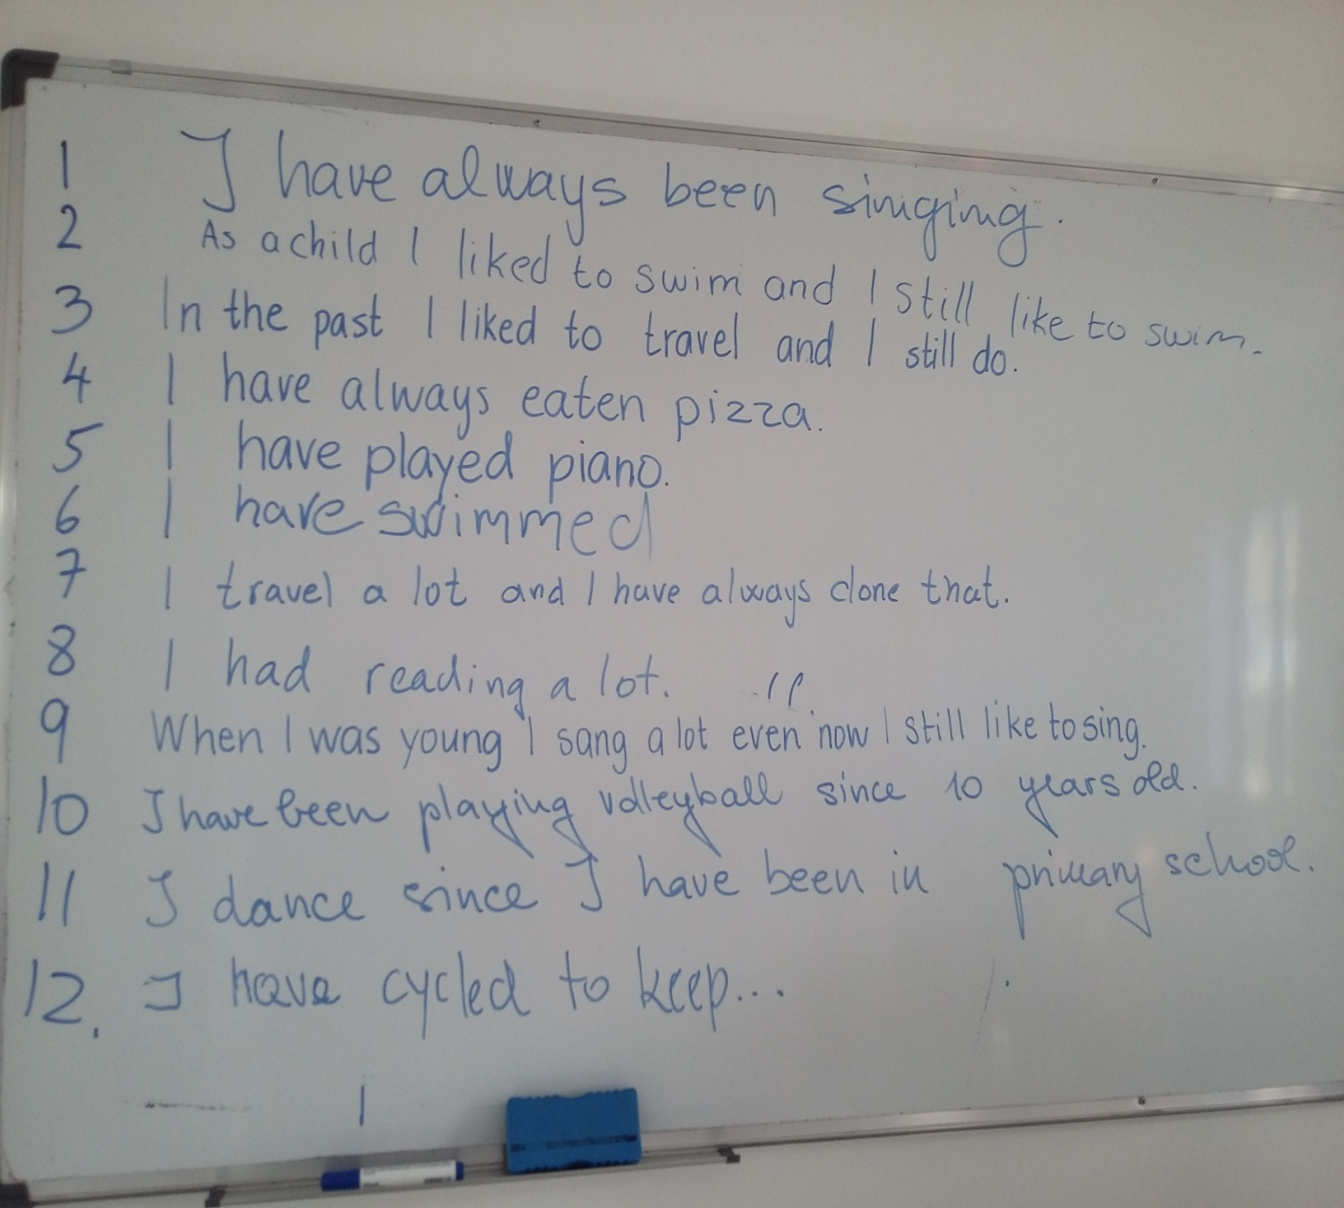 1 I have always been singing.
2 As a child I liked to swim and I still like to swim.
3 In the past I liked to travel and I still do.
4 I have always eaten pizza.
5 I have played piano.
6 I have swimmed
7 I travel a lot and I have always done that.
8 I had reading a lot.
9 When I was young I sang a lot even now I still like to sing.
10 I have been playing volleyball since 10 years old.
11 I dance since I have been in primary school.
12. I have cycled to keep...